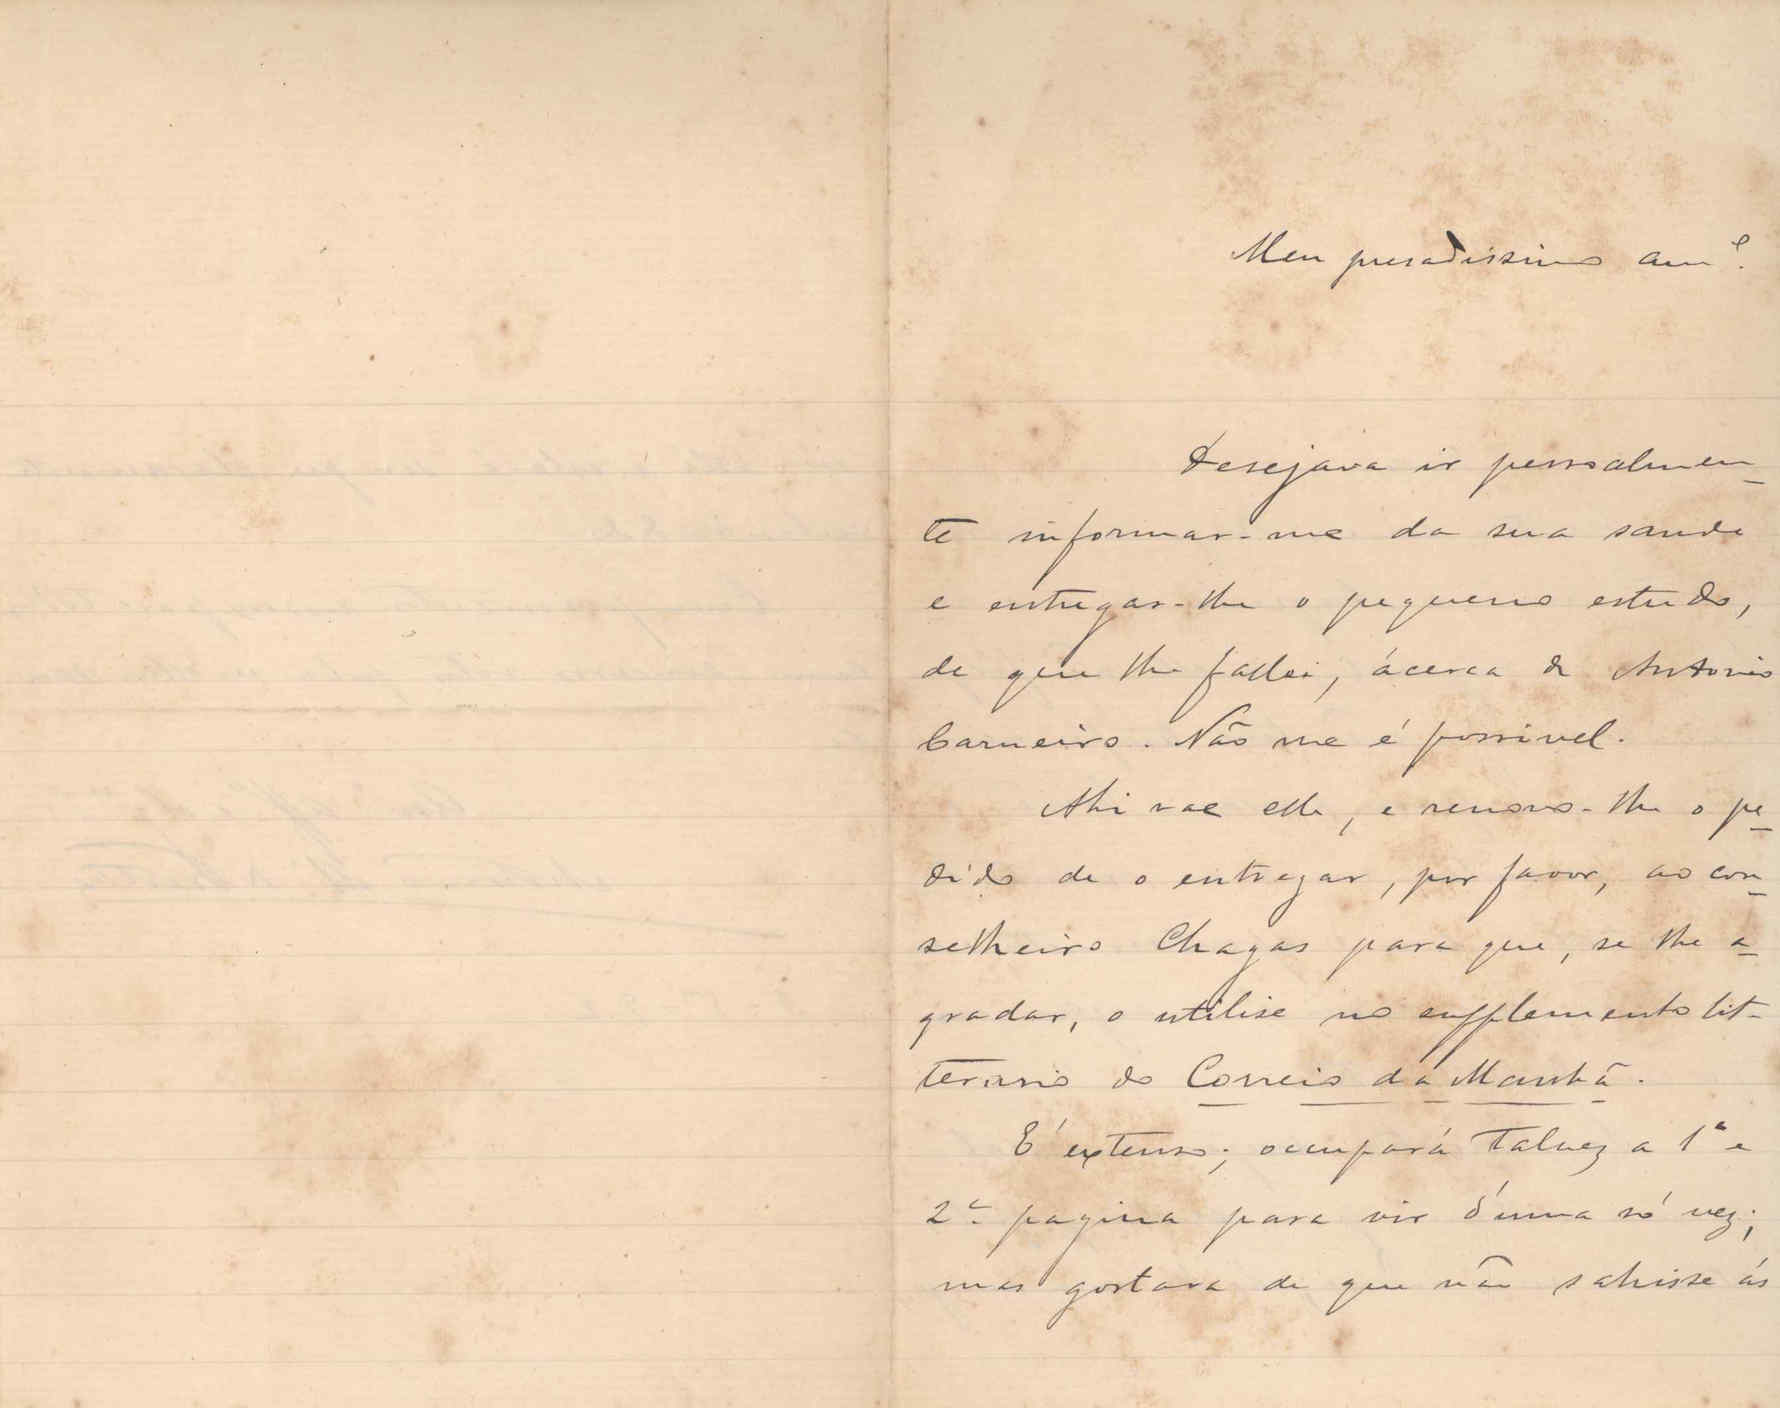 Meu presadissimo am.º
Desejava ir pessoalmen-
te informar-me da sua saude
e entregar-lhe o pequeno estudo,
de que lhe fallei, ácerca de Antonio
Carneiro. Não me é possivel.
Ahi vae elle, e renovo-lhe o pe-
dido de o entregar, por favor, ao con-
selheiro Chagas para que, se lhe a-
gradar, o utilise no supplemento lit-
terario do Correio da Manhã.
É extenso; occupará talvez a 1ª e
2ª pagina para vir d'uma só vez;
mas gostava de que não sahisse ás